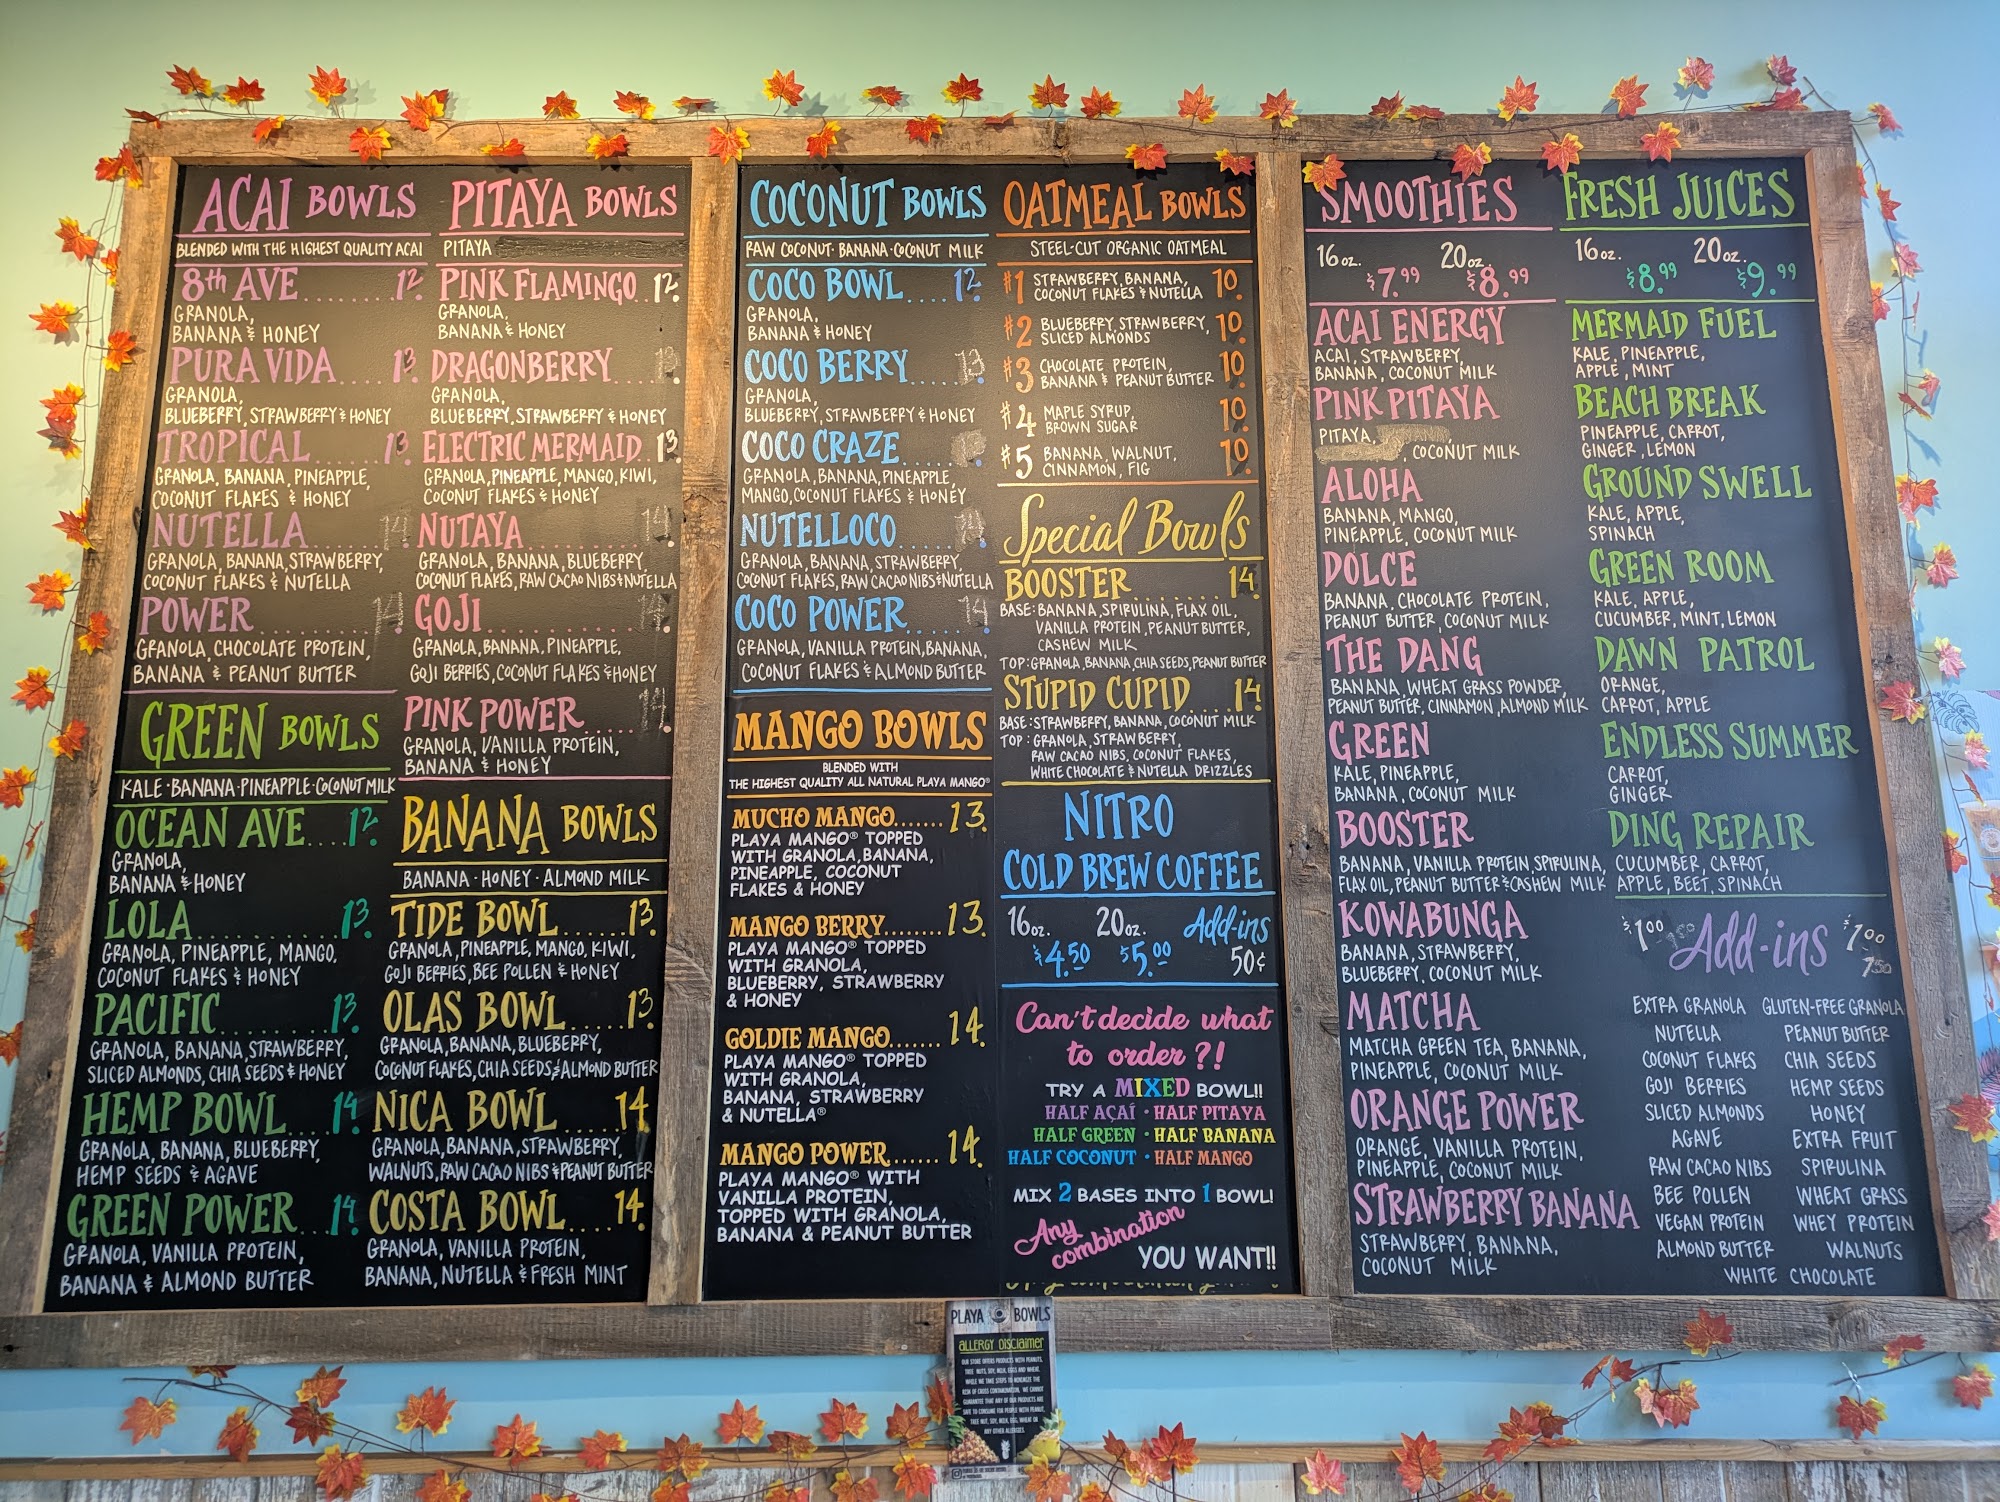 ACAI BOWLS
BLENDED WITH THE HIGHEST QUALITY ACAI
8th AVE........12.
GRANOLA,
BANANA & HONEY
PURA VIDA.....13.
GRANOLA,
BLUEBERRY, STRAWBERRY & HONEY
TROPICAL.......13.
GRANOLA, BANANA, PINEAPPLE,
COCONUT FLAKES & HONEY
NUTELLA........14.
GRANOLA, BANANA, STRAWBERRY,
COCONUT FLAKES & NUTELLA
POWER..........14.
GRANOLA, CHOCOLATE PROTEIN,
BANANA & PEANUT BUTTER
GREEN BOWLS
KALE · BANANA · PINEAPPLE · COCONUT MILK
OCEAN AVE....12.
GRANOLA,
BANANA & HONEY
LOLA............13.
GRANOLA, PINEAPPLE, MANGO,
COCONUT FLAKES & HONEY
PACIFIC.........13.
GRANOLA, BANANA, STRAWBERRY,
SLICED ALMONDS, CHIA SEEDS & HONEY
HEMP BOWL....14.
GRANOLA, BANANA, BLUEBERRY,
HEMP SEEDS & AGAVE
GREEN POWER...14.
GRANOLA, VANILLA PROTEIN,
BANANA & ALMOND BUTTER
PITAYA BOWLS
PITAYA
PINK FLAMINGO..12.
GRANOLA,
BANANA & HONEY
DRAGONBERRY....13.
GRANOLA,
BLUEBERRY, STRAWBERRY & HONEY
ELECTRIC MERMAID..13.
GRANOLA, PINEAPPLE, MANGO, KIWI,
COCONUT FLAKES & HONEY
NUTAYA...........14.
GRANOLA, BANANA, BLUEBERRY,
COCONUT FLAKES, RAW CACAO NIBS & NUTELLA
GOJI..............14.
GRANOLA, BANANA, PINEAPPLE,
GOJI BERRIES, COCONUT FLAKES & HONEY
PINK POWER......14.
GRANOLA, VANILLA PROTEIN,
BANANA & HONEY
BANANA BOWLS
BANANA · HONEY · ALMOND MILK
TIDE BOWL......13.
GRANOLA, PINEAPPLE, MANGO, KIWI,
GOJI BERRIES, BEE POLLEN & HONEY
OLAS BOWL.....13.
GRANOLA, BANANA, BLUEBERRY,
COCONUT FLAKES, CHIA SEEDS & ALMOND BUTTER
NICA BOWL.....14.
GRANOLA, BANANA, STRAWBERRY,
WALNUTS, RAW CACAO NIBS & PEANUT BUTTER
COSTA BOWL....14.
GRANOLA, VANILLA PROTEIN,
BANANA, NUTELLA & FRESH MINT
COCONUT BOWLS
RAW COCONUT · BANANA · COCONUT MILK
COCO BOWL....12.
GRANOLA,
BANANA & HONEY
COCO BERRY.....13.
GRANOLA,
BLUEBERRY, STRAWBERRY & HONEY
COCO CRAZE......
GRANOLA, BANANA, PINEAPPLE,
MANGO, COCONUT FLAKES & HONEY
NUTELLOCO......14.
GRANOLA, BANANA, STRAWBERRY,
COCONUT FLAKES, RAW CACAO NIBS & NUTELLA
COCO POWER.....14.
GRANOLA, VANILLA PROTEIN, BANANA,
COCONUT FLAKES & ALMOND BUTTER
MANGO BOWLS
BLENDED WITH
THE HIGHEST QUALITY ALL NATURAL PLAYA MANGO®
MUCHO MANGO.......13.
PLAYA MANGO® TOPPED
WITH GRANOLA, BANANA,
PINEAPPLE, COCONUT
FLAKES & HONEY
MANGO BERRY........13.
PLAYA MANGO® TOPPED
WITH GRANOLA,
BLUEBERRY, STRAWBERRY
& HONEY
GOLDIE MANGO.......14.
PLAYA MANGO® TOPPED
WITH GRANOLA,
BANANA, STRAWBERRY
& NUTELLA®
MANGO POWER.......14.
PLAYA MANGO® WITH
VANILLA PROTEIN,
TOPPED WITH GRANOLA,
BANANA & PEANUT BUTTER
OATMEAL BOWLS
STEEL-CUT ORGANIC OATMEAL
#1 STRAWBERRY, BANANA, 10.
COCONUT FLAKES & NUTELLA
#2 BLUEBERRY, STRAWBERRY, 10.
SLICED ALMONDS
#3 CHOCOLATE PROTEIN, 10.
BANANA & PEANUT BUTTER
#4 MAPLE SYRUP, 10.
BROWN SUGAR
#5 BANANA, WALNUT, 10.
CINNAMON, FIG
Special Bowls
BOOSTER..........14.
BASE: BANANA, SPIRULINA, FLAX OIL,
VANILLA PROTEIN, PEANUT BUTTER,
CASHEW MILK
TOP: GRANOLA, BANANA, CHIA SEEDS, PEANUT BUTTER
STUPID CUPID....14.
BASE: STRAWBERRY, BANANA, COCONUT MILK
TOP: GRANOLA, STRAWBERRY,
RAW CACAO NIBS, COCONUT FLAKES,
WHITE CHOCOLATE & NUTELLA DRIZZLES
NITRO
COLD BREW COFFEE
16oz. 20oz. Add-ins
$4.50 $5.00 50¢
Can't decide what
to order?!
TRY A MIXED BOWL!!
HALF AÇAÍ • HALF PITAYA
HALF GREEN • HALF BANANA
HALF COCONUT • HALF MANGO
MIX 2 BASES INTO 1 BOWL!
Any
combination
YOU WANT!!
SMOOTHIES
16oz. 20oz.
$7.99 $8.99
ACAI ENERGY
ACAI, STRAWBERRY,
BANANA, COCONUT MILK
PINK PITAYA
PITAYA,
, COCONUT MILK
ALOHA
BANANA, MANGO,
PINEAPPLE, COCONUT MILK
DOLCE
BANANA, CHOCOLATE PROTEIN,
PEANUT BUTTER, COCONUT MILK
THE DANG
BANANA, WHEAT GRASS POWDER,
PEANUT BUTTER, CINNAMON, ALMOND MILK
GREEN
KALE, PINEAPPLE,
BANANA, COCONUT MILK
BOOSTER
BANANA, VANILLA PROTEIN, SPIRULINA,
FLAX OIL, PEANUT BUTTER & CASHEW MILK
KOWABUNGA
BANANA, STRAWBERRY,
BLUEBERRY, COCONUT MILK
MATCHA
MATCHA GREEN TEA, BANANA,
PINEAPPLE, COCONUT MILK
ORANGE POWER
ORANGE, VANILLA PROTEIN,
PINEAPPLE, COCONUT MILK
STRAWBERRY BANANA
STRAWBERRY, BANANA,
COCONUT MILK
FRESH JUICES
16oz. 20oz.
$8.99 $9.99
MERMAID FUEL
KALE, PINEAPPLE,
APPLE, MINT
BEACH BREAK
PINEAPPLE, CARROT,
GINGER, LEMON
GROUND SWELL
KALE, APPLE,
SPINACH
GREEN ROOM
KALE, APPLE,
CUCUMBER, MINT, LEMON
DAWN PATROL
ORANGE,
CARROT, APPLE
ENDLESS SUMMER
CARROT,
GINGER
DING REPAIR
CUCUMBER, CARROT,
APPLE, BEET, SPINACH
$1.00 -1.50 Add-ins $1.00
1.50
EXTRA GRANOLA GLUTEN-FREE GRANOLA
NUTELLA PEANUT BUTTER
COCONUT FLAKES CHIA SEEDS
GOJI BERRIES HEMP SEEDS
SLICED ALMONDS HONEY
AGAVE EXTRA FRUIT
RAW CACAO NIBS SPIRULINA
BEE POLLEN WHEAT GRASS
VEGAN PROTEIN WHEY PROTEIN
ALMOND BUTTER WALNUTS
WHITE CHOCOLATE
PLAYA BOWLS
ALLERGY DISCLAIMER
OUR STORE OFFERS PRODUCTS WITH PEANUTS,
TREE NUTS, SOY, MILK, EGGS AND WHEAT.
WHILE WE TAKE STEPS TO MINIMIZE THE
RISK OF CROSS CONTAMINATION, WE CANNOT
GUARANTEE THAT ANY OF OUR PRODUCTS ARE
SAFE TO CONSUME FOR PEOPLE WITH PEANUT,
TREE NUT, SOY, MILK, EGG, WHEAT OR
ANY OTHER ALLERGIES.